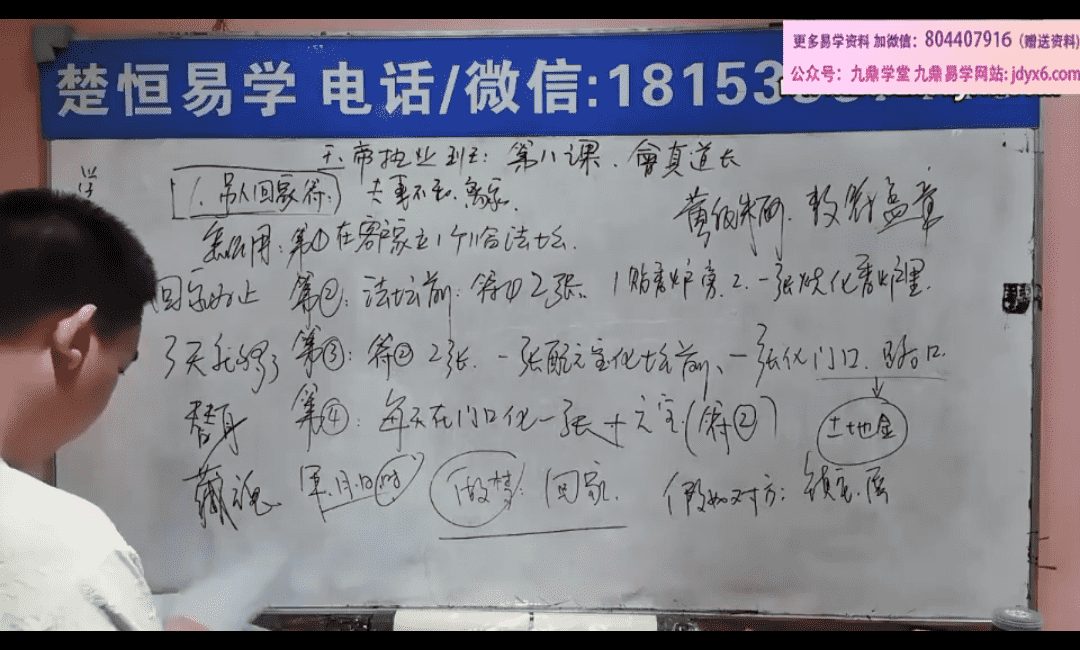 更多易学资料 加微信：804407916（赠送资料)
公众号：九鼎学堂 九鼎易学网站: jdyx6.com
楚恒易学 电话/微信:18153
五帝执业班：第八课．會真道长
1．吊人回家符． 夫妻不和，离家．
黄纸朱砂．敕符盖章
怎么用：第①在客家立1个合法坛．
回家为止 第②：法坛前：符① 2张。1贴香炉旁．2．一张焚化香炉里．
第③：符② 2张．一张配元宝化坛前、一张化门口．路口．
替身 第④：每天在门口化一张+元宝（符②）
土地金
藏魂 年．月．日．时 做梦：回家． 假如对方：